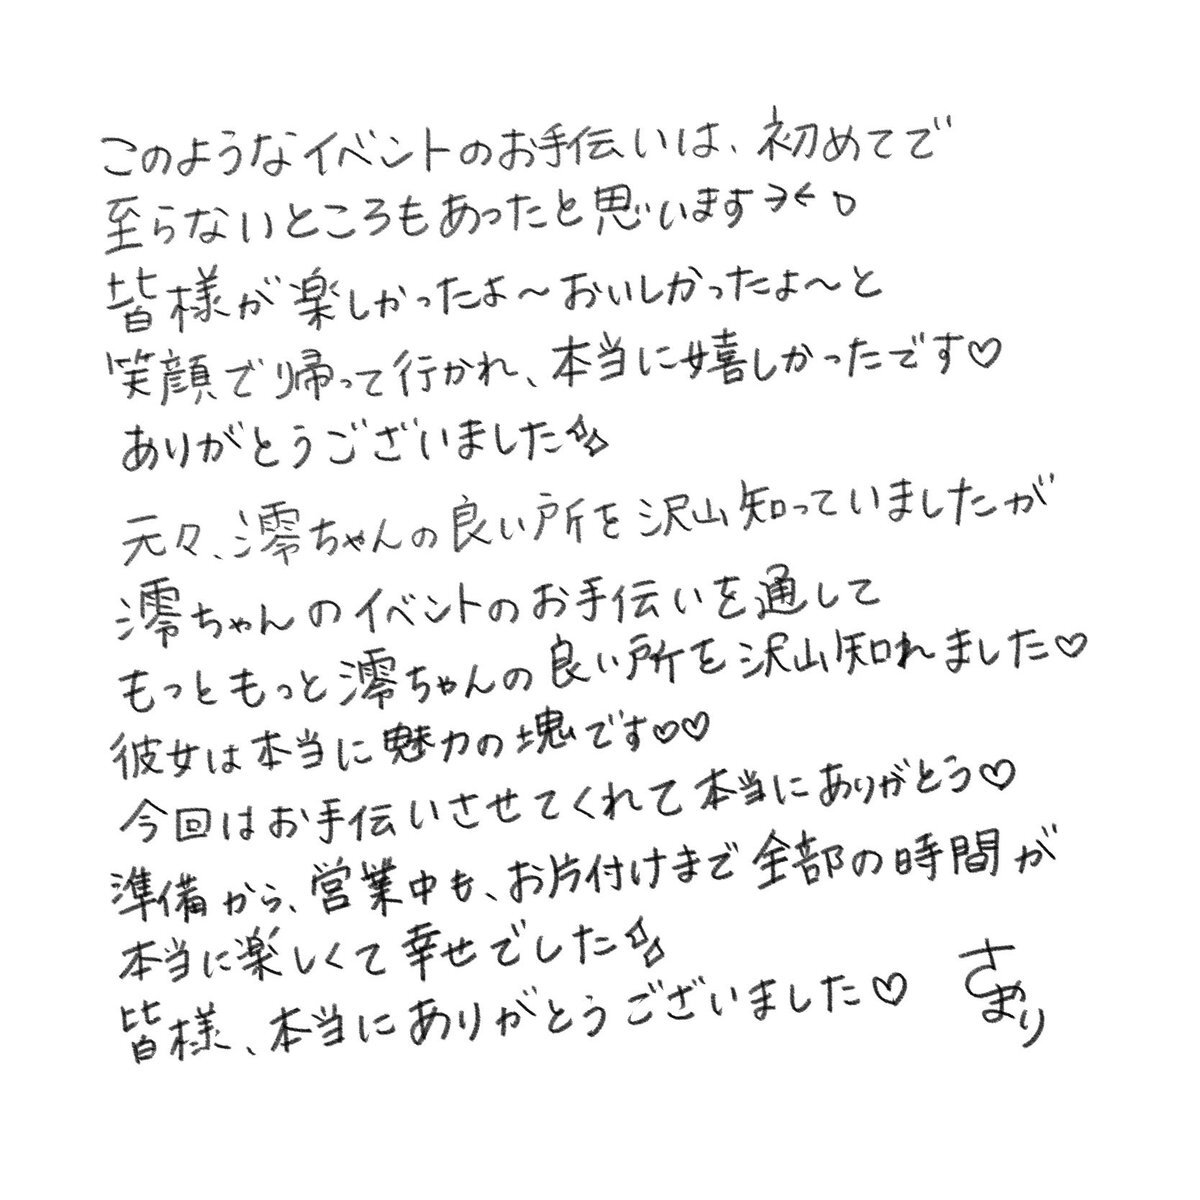 このようなイベントのお手伝いは、初めてで
至らないところもあったと思います
皆様が楽しかったよ〜おいしかったよ〜と
笑顔で帰って行かれ、本当に嬉しかったです♡
ありがとうございました
元々、澪ちゃんの良い所を沢山知っていましたが
澪ちゃんのイベントのお手伝いを通して
もっともっと澪ちゃんの良い所を沢山知れました♡
彼女は本当に魅力の塊です♡♡
今回はお手伝いさせてくれて本当にありがとう♡
準備から、営業中も、お片付けまで全部の時間が
本当に楽しくて幸せでした
皆様、本当にありがとうございました♡